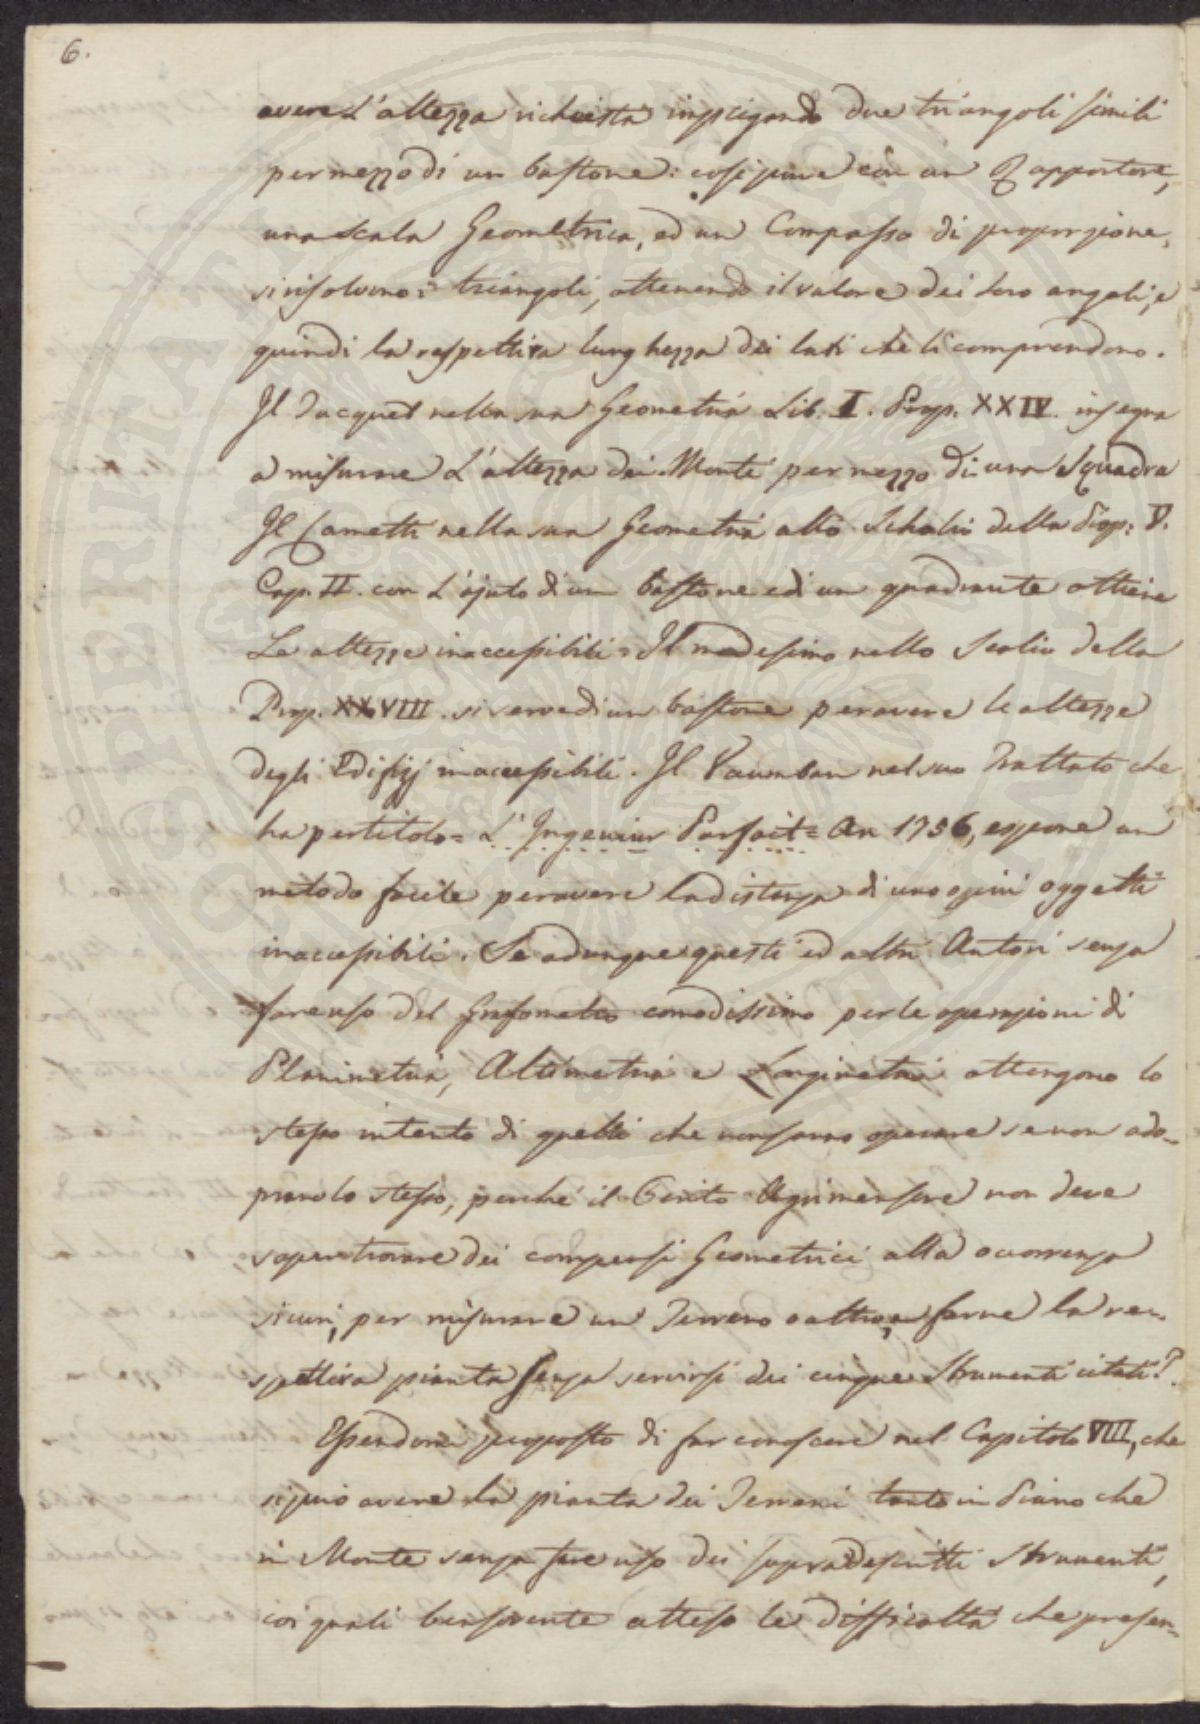 6.
avere L'altezza richiesta impiegando due triangoli simili
per mezzo di un bastone: così pure con un Rapportore,
una scala Geometrica, ed un Compasso di proporzione,
si risolvono i triangoli, ottenendo il valore dei loro angoli, e
quindi la respettiva lunghezza dei lati che li comprendono.
Il Tacquet nella sua Geometria Lib. I. Prop. XXIV. insegna
a misurare L'altezza dei Monti per mezzo di una Squadra
Il Cametti nella sua Geometria allo Scholio della Prop: V.
Cap. II. con L'ajuto di un bastone ed un quadrante ottiene
Le altezze inaccessibili: Il medesimo nello Scolio della
Prop. XXVIII. si serve di un bastone per avere le altezze
degli Edifizj inaccessibili. Il Vaumban nel suo Trattato che
ha per titolo = L'Ingenieur Parfait = An 1756, espone un
metodo facile per avere la distanza di uno o più oggetti
inaccessibili. Se adunque questi ed altri Autori senza
fare uso del Grafometro comodissimo per le operazioni di
Planimetria, Altimetria e Longimetria ottengono lo
stesso intento di quelli che non sanno operare se non ado-
prano lo stesso, perché il Perito Agrimensore non deve
saper trovare dei compensi Geometrici alla occorrenza
sicuri, per misurare un Terreno o altro, e farne la res-
spettiva pianta senza servirsi dei cinque Strumenti citati?
Essendomi proposto di far conoscere nel Capitolo VIII, che
si può avere la pianta dei Terreni tanto in Piano che
in Monte senza fare uso dei sopradescritti Strumenti,
coi quali bensovente atteso le difficoltà che presen-